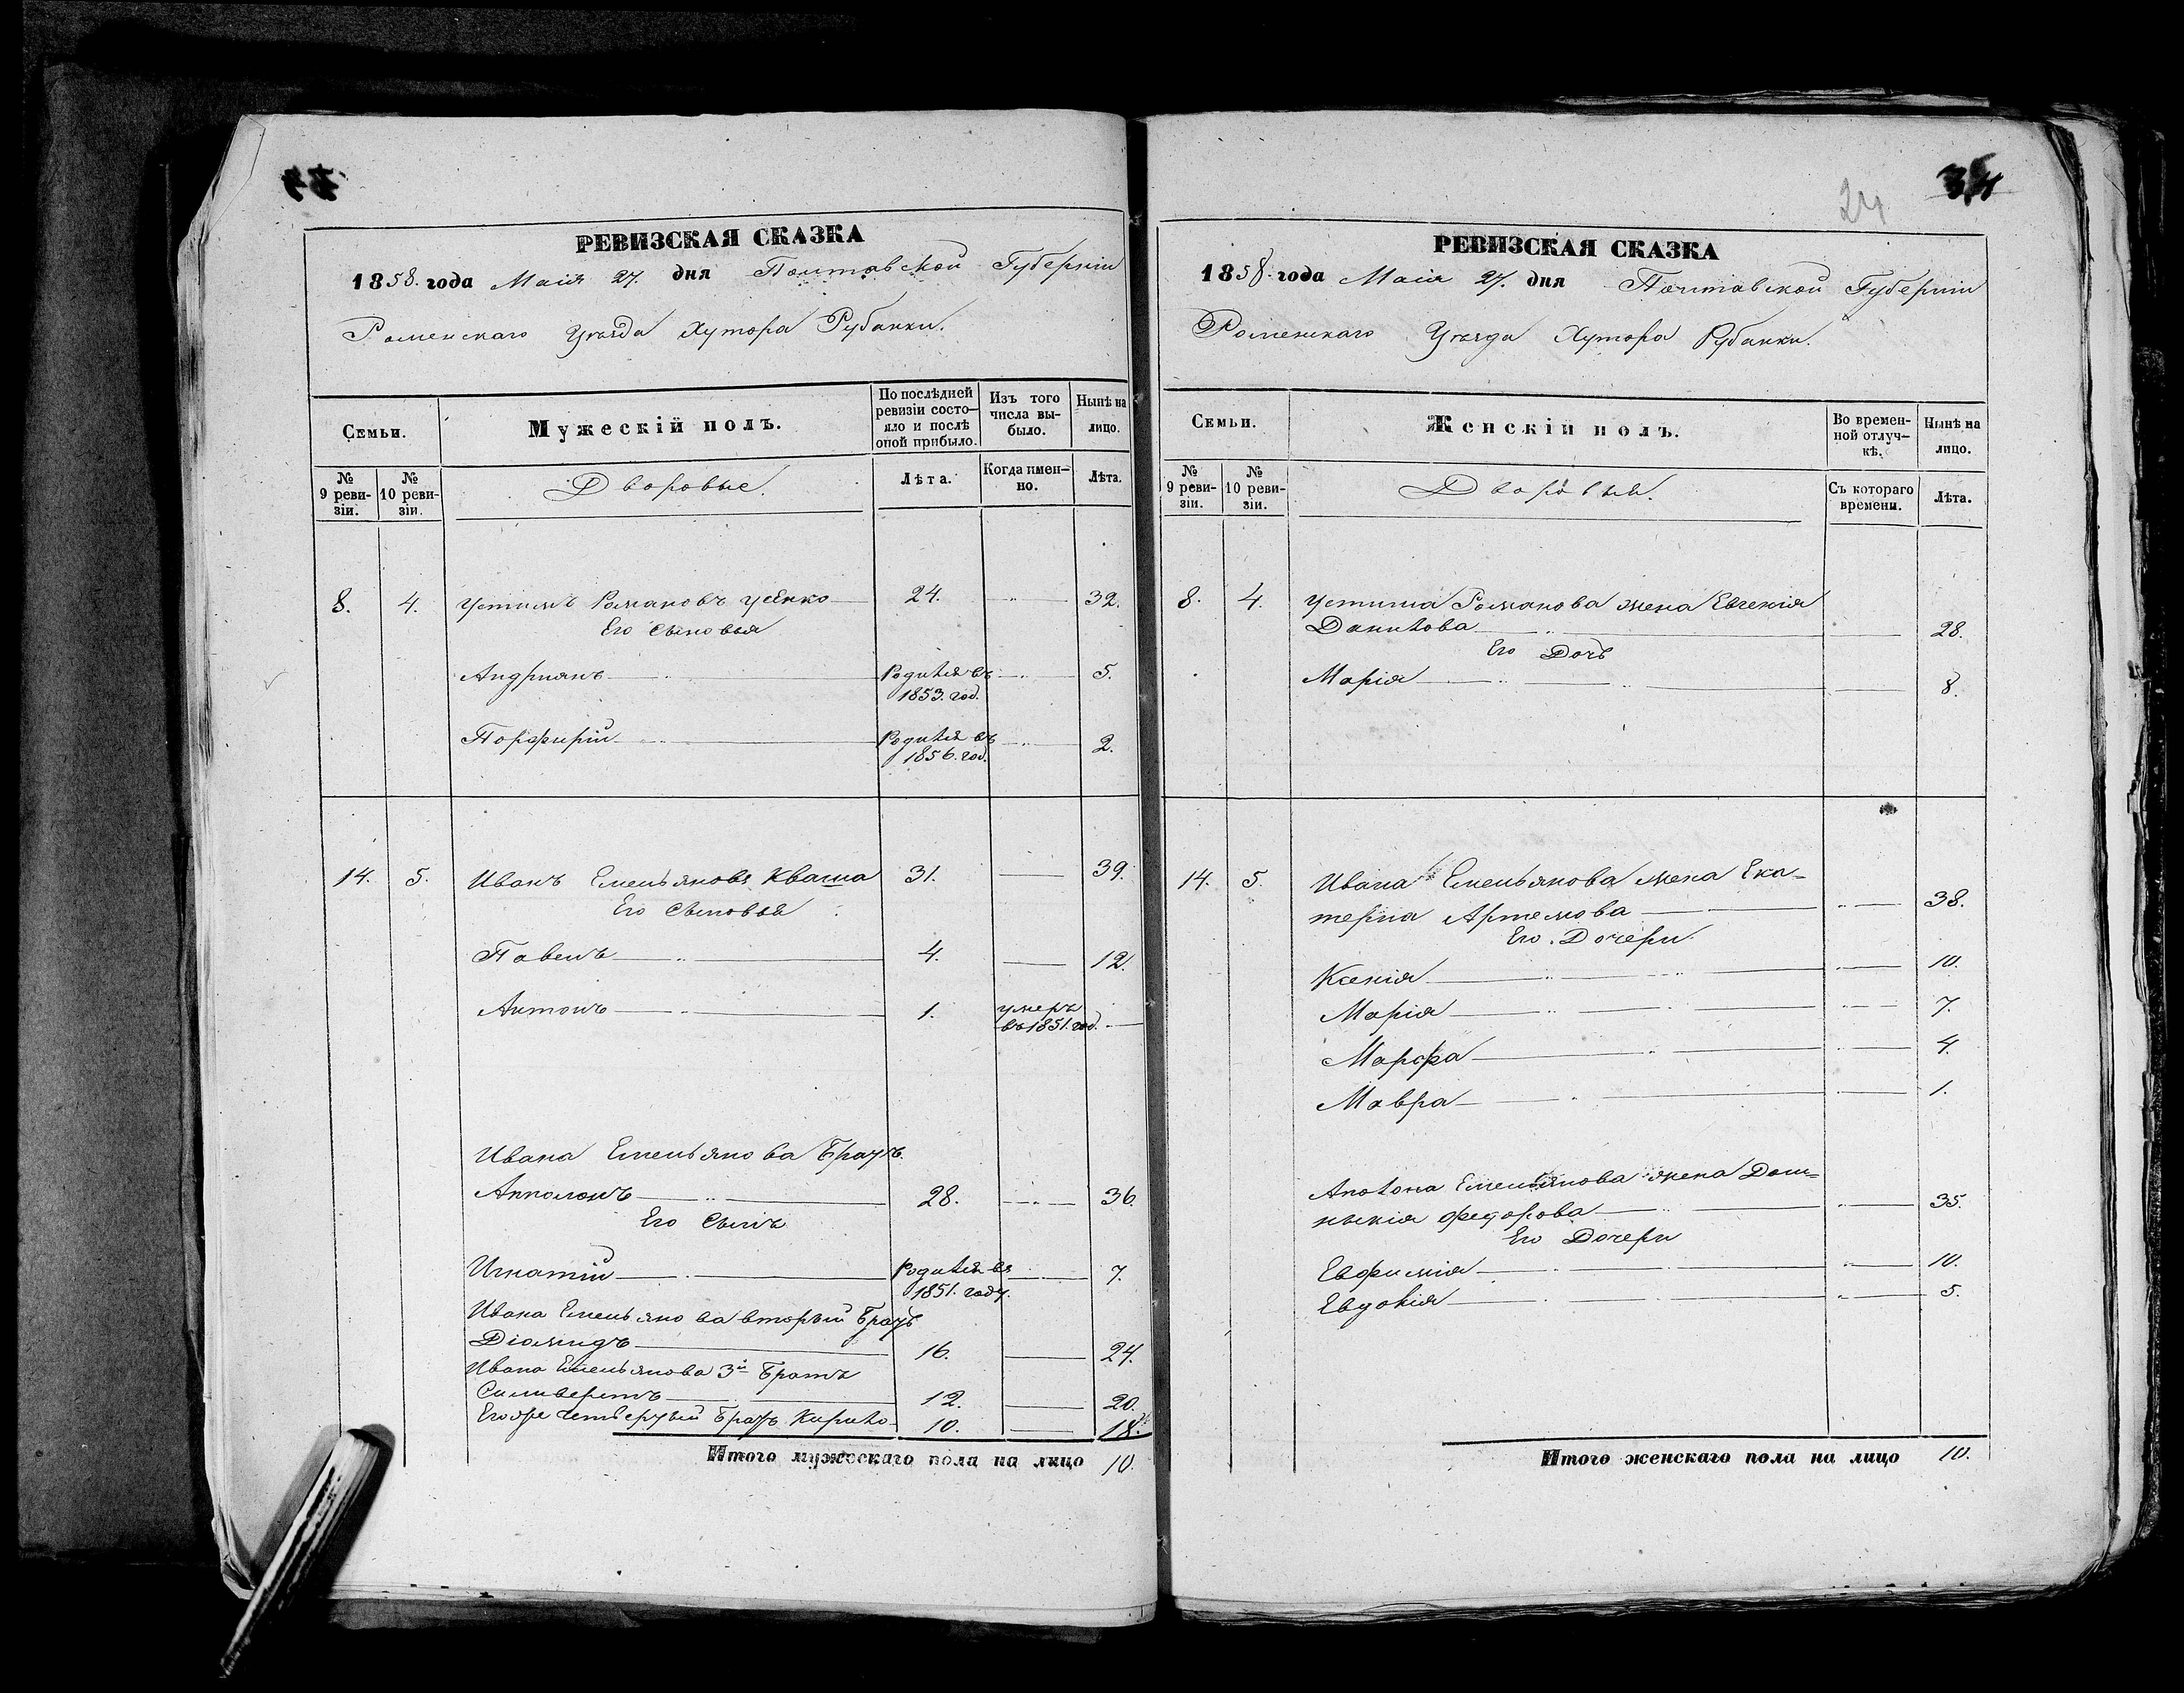 РЕВИЗСКАЯ СКАЗКА
1858. года Маія 27. дня Полтавской Губерніи
Роменскаго Уѣзда Хутора Рубанки.
Семьи.
Мужескій полъ.
По послѣдней ревизіи состо-
яло и послѣ
оной прибыло.
Изъ того
числа вы-
было.
Нынѣ на
лицо.
№
9 реви-
зіи.
№
10 реви-
зіи.
Дворовые.
Лѣта.
Когда имен-
но.
Лѣта.
8. 4. Устимъ Романовъ Усенко 24. 32.
Его сыновья
Андріянъ Родился въ 5.
1853. год.
Порфирій Родился въ 2.
1856. год.
14. 5. Иванъ Емельяновъ Кваша 31. 39.
Его сыновья
Павелъ 4. 12.
Антонъ 1. умеръ
въ 1851. год.
Ивана Емельянова Братъ
Апполонъ 28. 36.
Его Сынъ
Игнатій Родился въ 7.
1851. году.
Ивана Емельянова вторый Братъ
Діомидъ 16. 24.
Ивана Емельянова 3й Братъ
Силиверстъ 12. 20.
Егоже четвертый Братъ Кирило 10. 18.
Итого мужескаго пола на лицо 10.
24 34
РЕВИЗСКАЯ СКАЗКА
1858. года Маія 27. дня Полтавской Губерніи
Роменскаго Уѣзда Хутора Рубанки.
Семьи.
Женскій полъ.
Во времен-
ной отлуч-
кѣ.
Нынѣ на
лицо.
№
9 реви-
зіи.
№
10 реви-
зіи.
Дворовыя.
Съ котораго
времени.
Лѣта.
8. 4. Устима Романова жена Евгенія
Данилова 28.
Его Дочь
Марія 8.
14. 5. Ивана Емельянова жена Ека-
терна Артемова 38.
Его Дочери
Ксенія 10.
Марія 7.
Марфа 4.
Мавра 1.
Аполона Емельянова жена Дом-
никія Федорова 35.
Его Дочери
Евфимія 10.
Евдокія 5.
Итого женскаго пола на лицо 10.